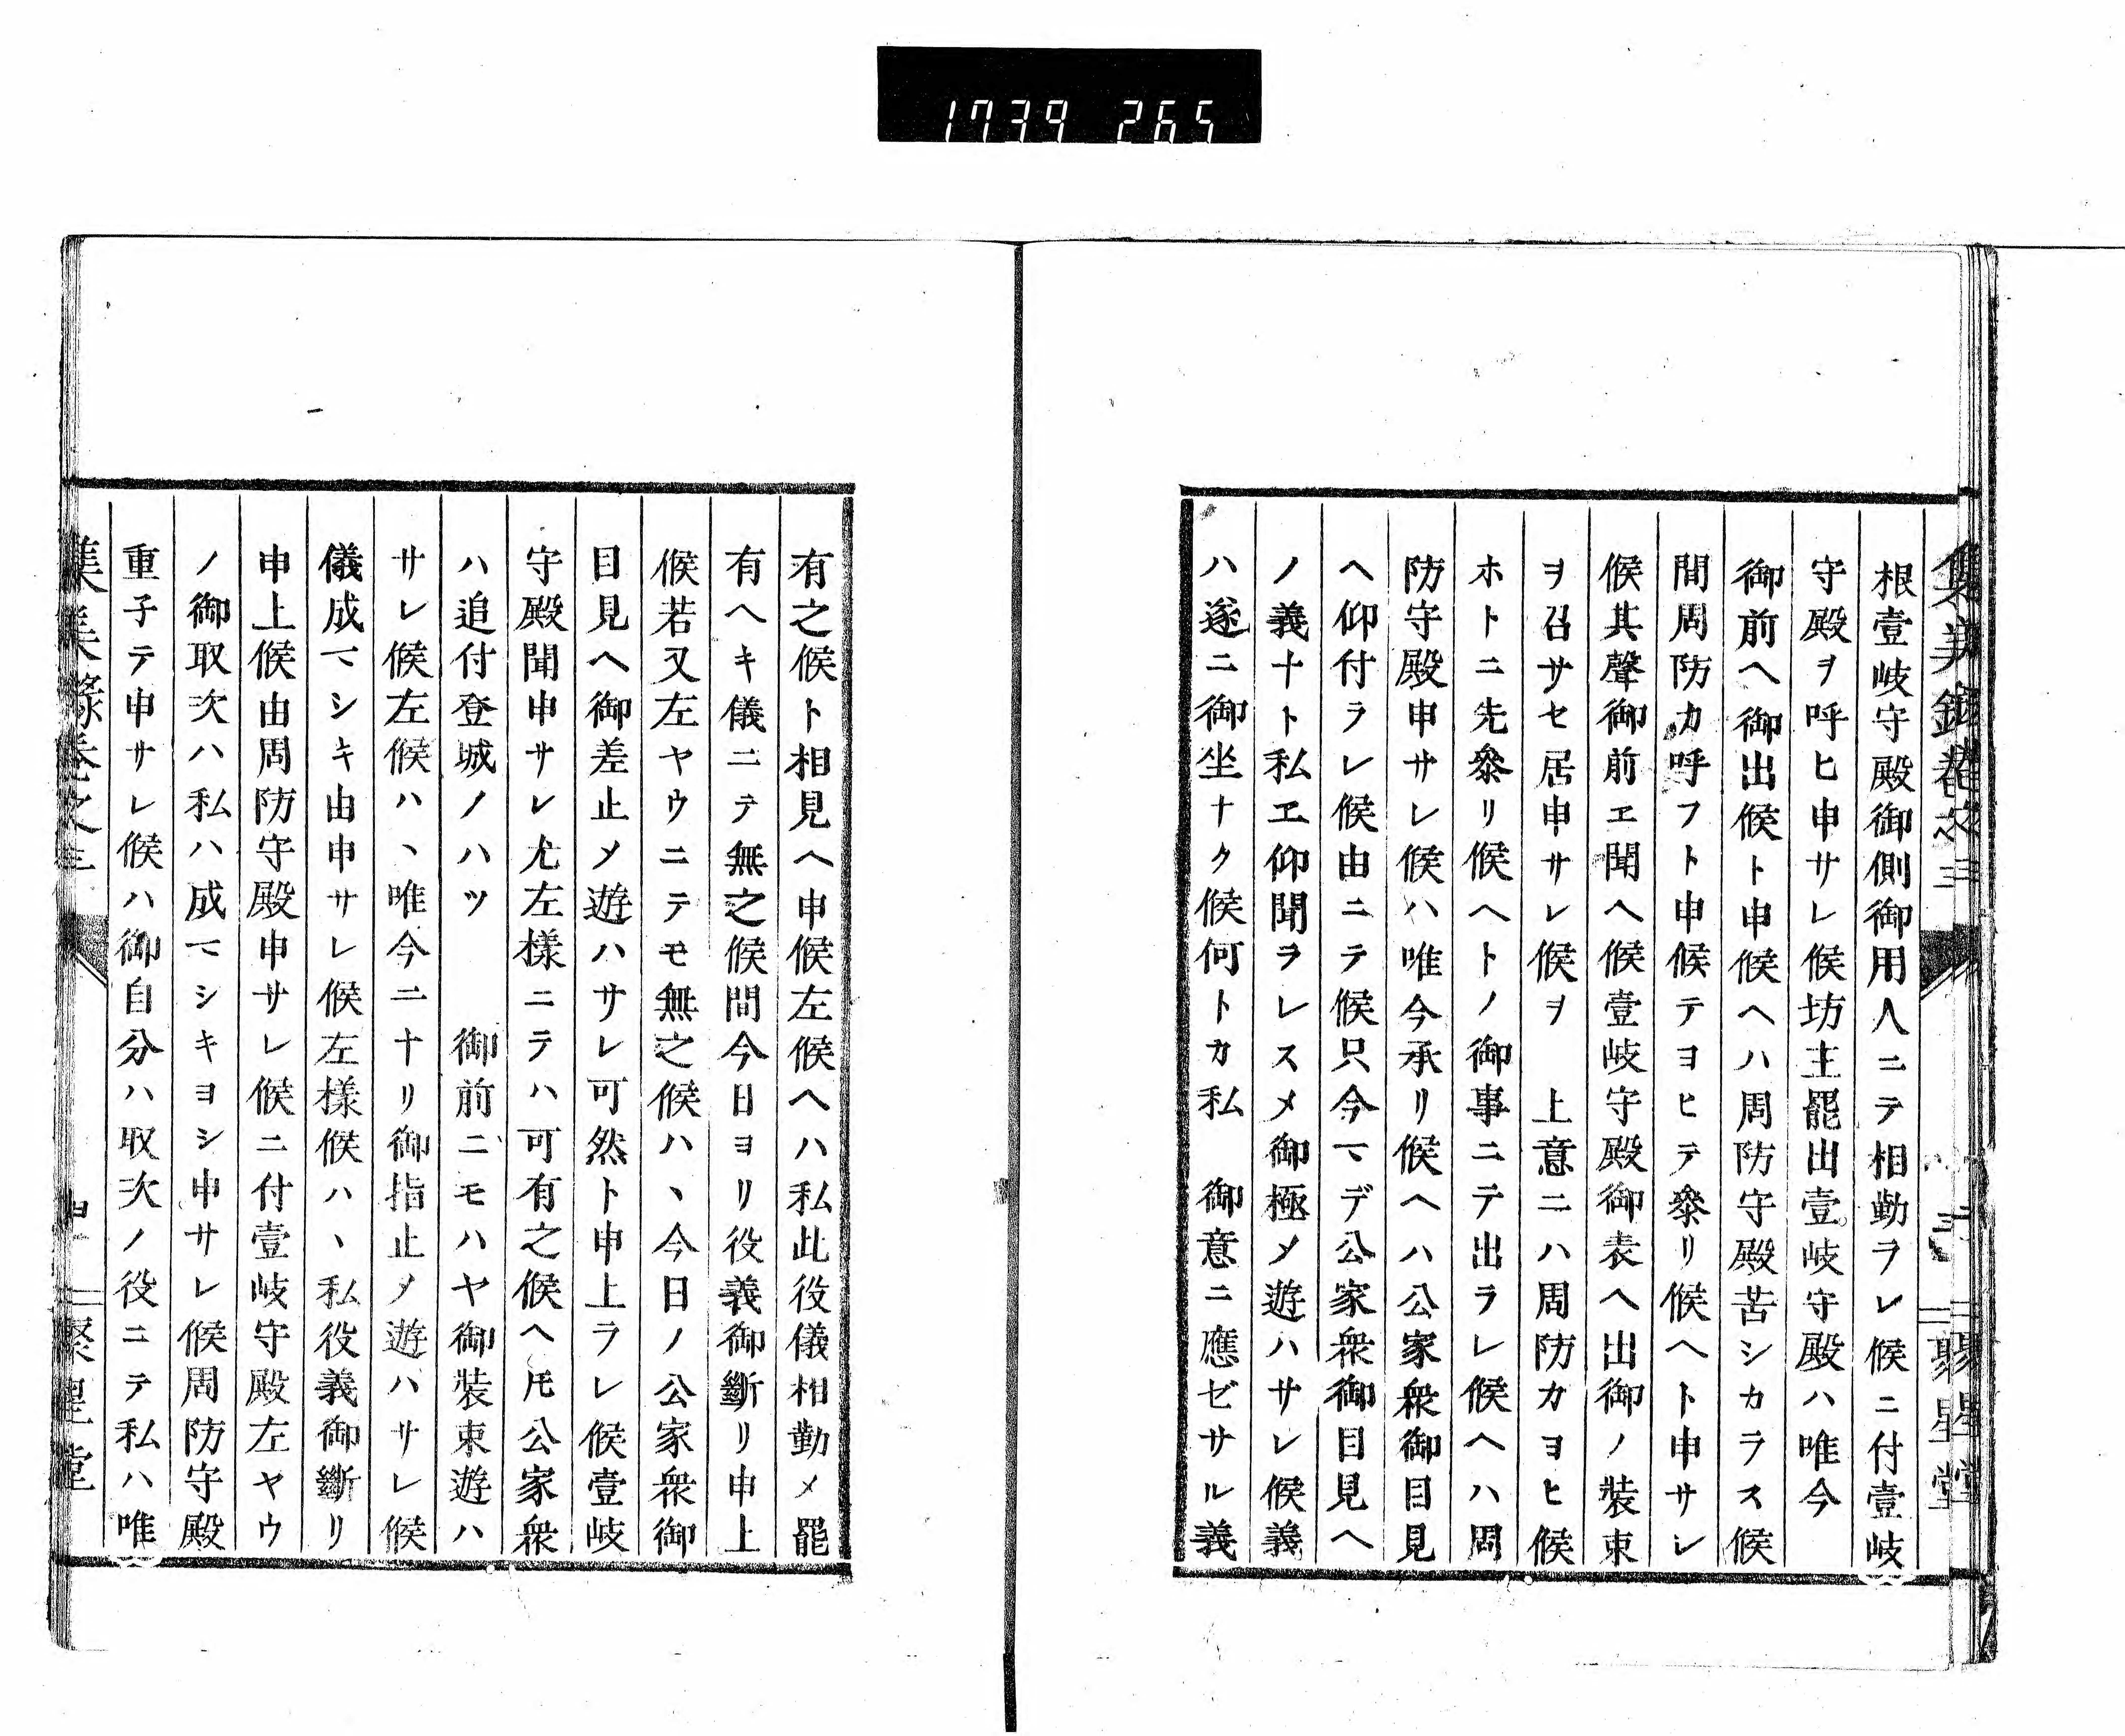 1739 265
根壹岐守殿御側御用人ニテ相勤ヲレ候ニ付壹岐
守殿ヲ呼ヒ申サレ候坊主罷出壹岐守殿ハ唯今
御前ヘ御出候ト申候ヘハ周防守殿苦シカラス候
間周防カ呼フト申候テヨヒテ參リ候ヘト申サレ
候其聲御前エ聞ヘ候壹岐守殿御表ヘ出御ノ裝束
ヲ召サセ居申サレ候ヲ　上意ニハ周防カヨヒ候
ホトニ先參リ候ヘトノ御事ニテ出ラレ候ヘハ周
防守殿申サレ候ハ唯今承リ候ヘハ公家衆御目見
ヘ仰付ラレ候由ニテ候只今マデ公家衆御目見ヘ
ノ義ナト私エ仰聞ラレスメ御極メ遊ハサレ候義
ハ遂ニ御坐ナク候何トカ私　御意ニ應ゼサル義
有之候ト相見ヘ申候左候ヘハ私此役儀相勤メ罷
有ヘキ儀ニテ無之候間今日ヨリ役義御斷リ申上
候若又左ヤウニテモ無之候ハヽ今日ノ公家衆御
目見ヘ御差止メ遊ハサレ可然ト申上ラレ候壹岐
守殿聞申サレ尤左樣ニテハ可有之候ヘ𪜈公家衆
ハ追付登城ノハツ　御前ニモハヤ御裝束遊ハ
サレ候左候ハヽ唯今ニナリ御指止メ遊ハサレ候
儀成マシキ由申サレ候左樣候ハヽ私役義御斷リ
申上候由周防守殿申サレ候ニ付壹岐守殿左ヤウ
ノ御取次ハ私ハ成マシキヨシ申サレ候周防守殿
重子テ申サレ候ハ御自分ハ取次ノ役ニテ私ハ唯